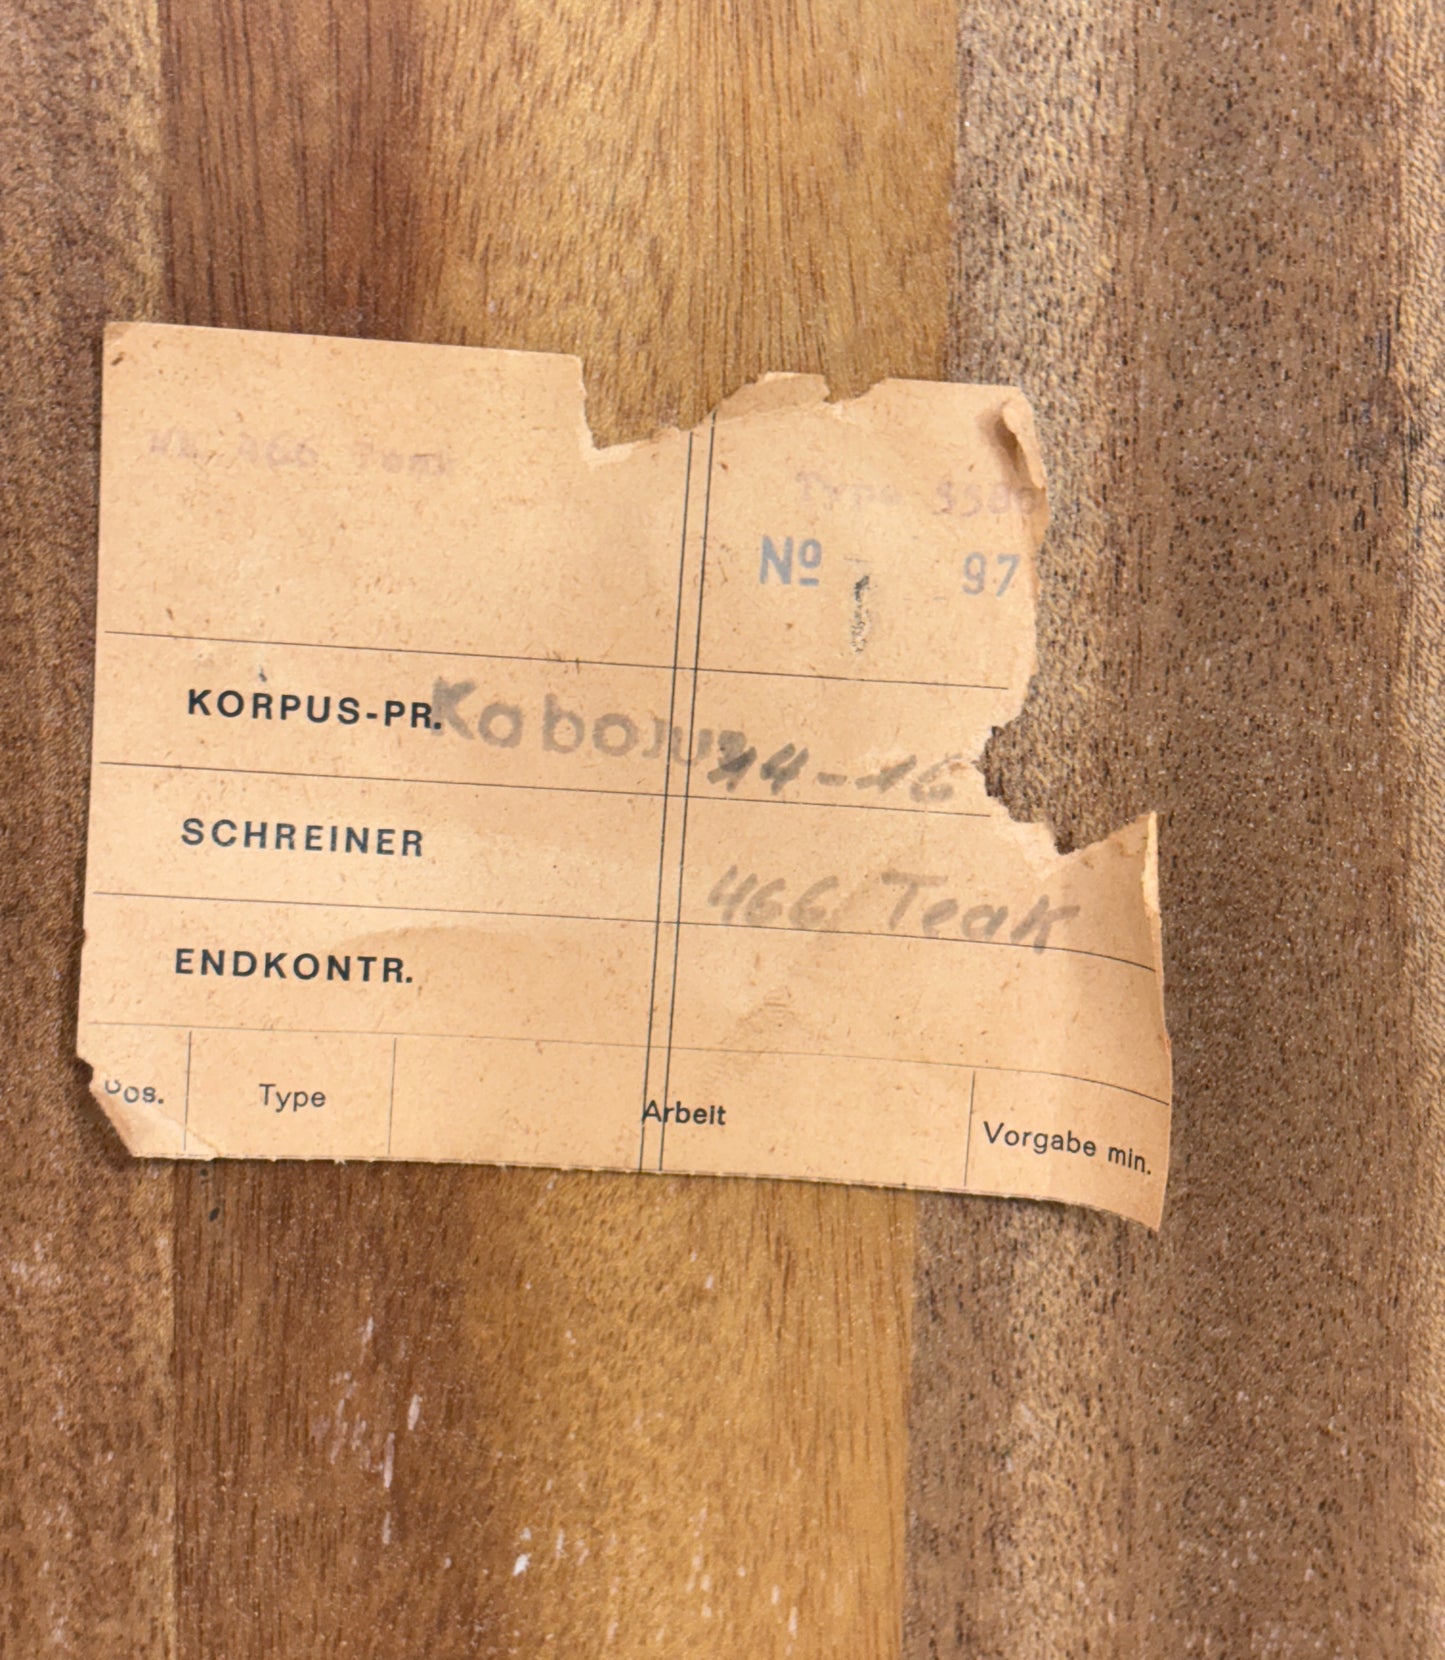 466
Type
Nº 97
KORPUS-PR.
14-16
SCHREINER
466 Teak
ENDKONTR.
Pos. Type Arbeit Vorgabe min.